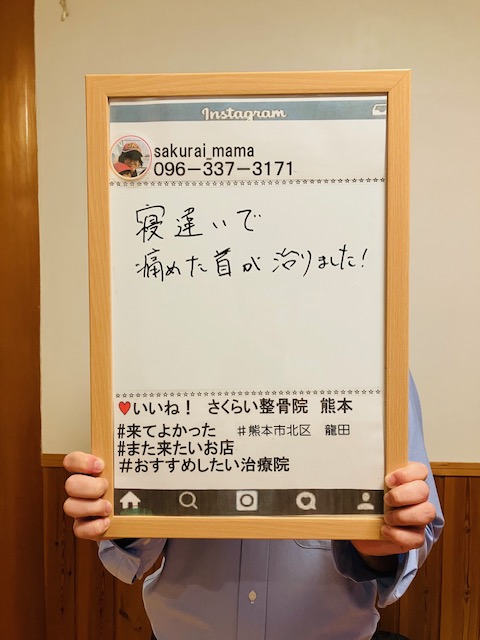 Instagram
sakurai_mama
096-337-3171
寝違いで
痛めた首が治りました!
♥いいね! さくらい整骨院 熊本
#来てよかった #熊本市北区 龍田
#また来たいお店
#おすすめしたい治療院